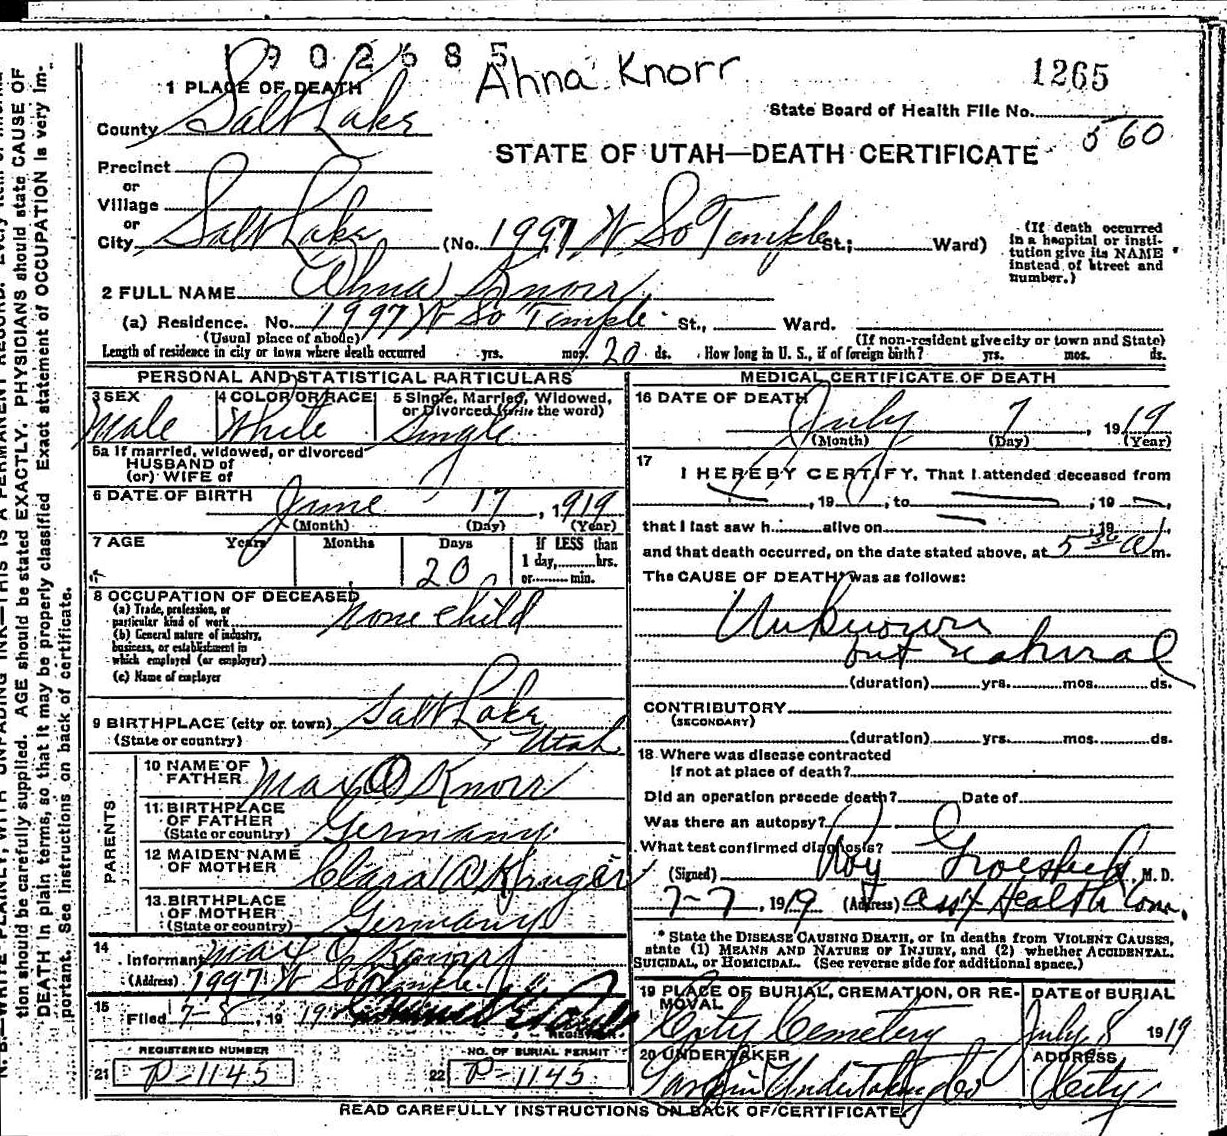 1902685
Ahna Knorr
1265
1 PLACE OF DEATH
State Board of Health File No.
County Salt Lake
560
STATE OF UTAH—DEATH CERTIFICATE
Precinct
or
Village
or
City Salt Lake (No. 1997 W So Temple St.; Ward)
(If death occurred
in a hospital or insti-
tution give its NAME
instead of street and
number.)
2 FULL NAME Ahna Knorr
(a) Residence. No. 1997 W So Temple St., Ward.
(Usual place of abode) (If non-resident give city or town and State)
Length of residence in city or town where death occurred yrs. mos. 20 ds. How long in U. S., if of foreign birth? yrs. mos. ds.
PERSONAL AND STATISTICAL PARTICULARS
3 SEX
Male
4 COLOR OR RACE
White
5 Single, Married, Widowed,
or Divorced (write the word)
Single
5a If married, widowed, or divorced
HUSBAND of
(or) WIFE of
6 DATE OF BIRTH June 17, 1919
(Month) (Day) (Year)
7 AGE Years Months Days If LESS than
1 day, hrs.
20 or min.
8 OCCUPATION OF DECEASED
(a) Trade, profession, or
particular kind of work none child
(b) General nature of industry,
business, or establishment in
which employed (or employer)
(c) Name of employer
9 BIRTHPLACE (city or town) Salt Lake
(State or country) Utah
PARENTS
10 NAME OF
FATHER Max O Knorr
11 BIRTHPLACE
OF FATHER
(State or country) Germany
12 MAIDEN NAME
OF MOTHER Clara A Kruger
13 BIRTHPLACE
OF MOTHER
(State or country) Germany
14
Informant Max O Knorr
(Address) 1997 W So Temple
15
Filed 7-8, 1919
REGISTRAR
REGISTERED NUMBER
21 P-1145
NO. OF BURIAL PERMIT
22 P-1145
MEDICAL CERTIFICATE OF DEATH
16 DATE OF DEATH
July 7, 1919
(Month) (Day) (Year)
17
I HEREBY CERTIFY, That I attended deceased from
, 19 , to , 19 ,
that I last saw h alive on , 19
and that death occurred, on the date stated above, at 5 30 a m.
The CAUSE OF DEATH* was as follows:
Unknown
but natural
(duration) yrs. mos. ds.
CONTRIBUTORY
(SECONDARY)
(duration) yrs. mos. ds.
18 Where was disease contracted
if not at place of death?
Did an operation precede death? Date of
Was there an autopsy?
What test confirmed diagnosis?
(Signed) Roy Groesbeck, M. D.
7-7, 1919 (Address) Ass't Health Com.
* State the DISEASE CAUSING DEATH, or in deaths from VIOLENT CAUSES,
state (1) MEANS AND NATURE OF INJURY, and (2) whether ACCIDENTAL,
SUICIDAL, or HOMICIDAL. (See reverse side for additional space.)
19 PLACE OF BURIAL, CREMATION, OR RE-
MOVAL
City Cemetery
DATE OF BURIAL
July 8 1919
20 UNDERTAKER
Undertaking Co
ADDRESS
City
READ CAREFULLY INSTRUCTIONS ON BACK OF CERTIFICATE
N. B.—WRITE PLAINLY, WITH UNFADING INK—THIS IS A PERMANENT RECORD. Every item of informa-
tion should be carefully supplied. AGE should be stated EXACTLY. PHYSICIANS should state CAUSE OF
DEATH in plain terms, so that it may be properly classified Exact statement of OCCUPATION is very im-
portant. See instructions on back of certificate.